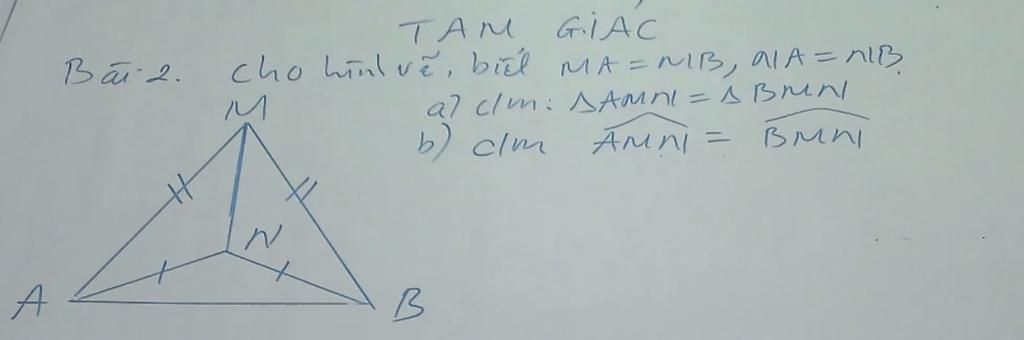 TAM GIÁC
Bài 2. Cho hình vẽ, biết MA = MB, NA = NB.
a) c/m: ΔAMN = Δ BMN
b) c/m AMN = BMN
M
N
A
B